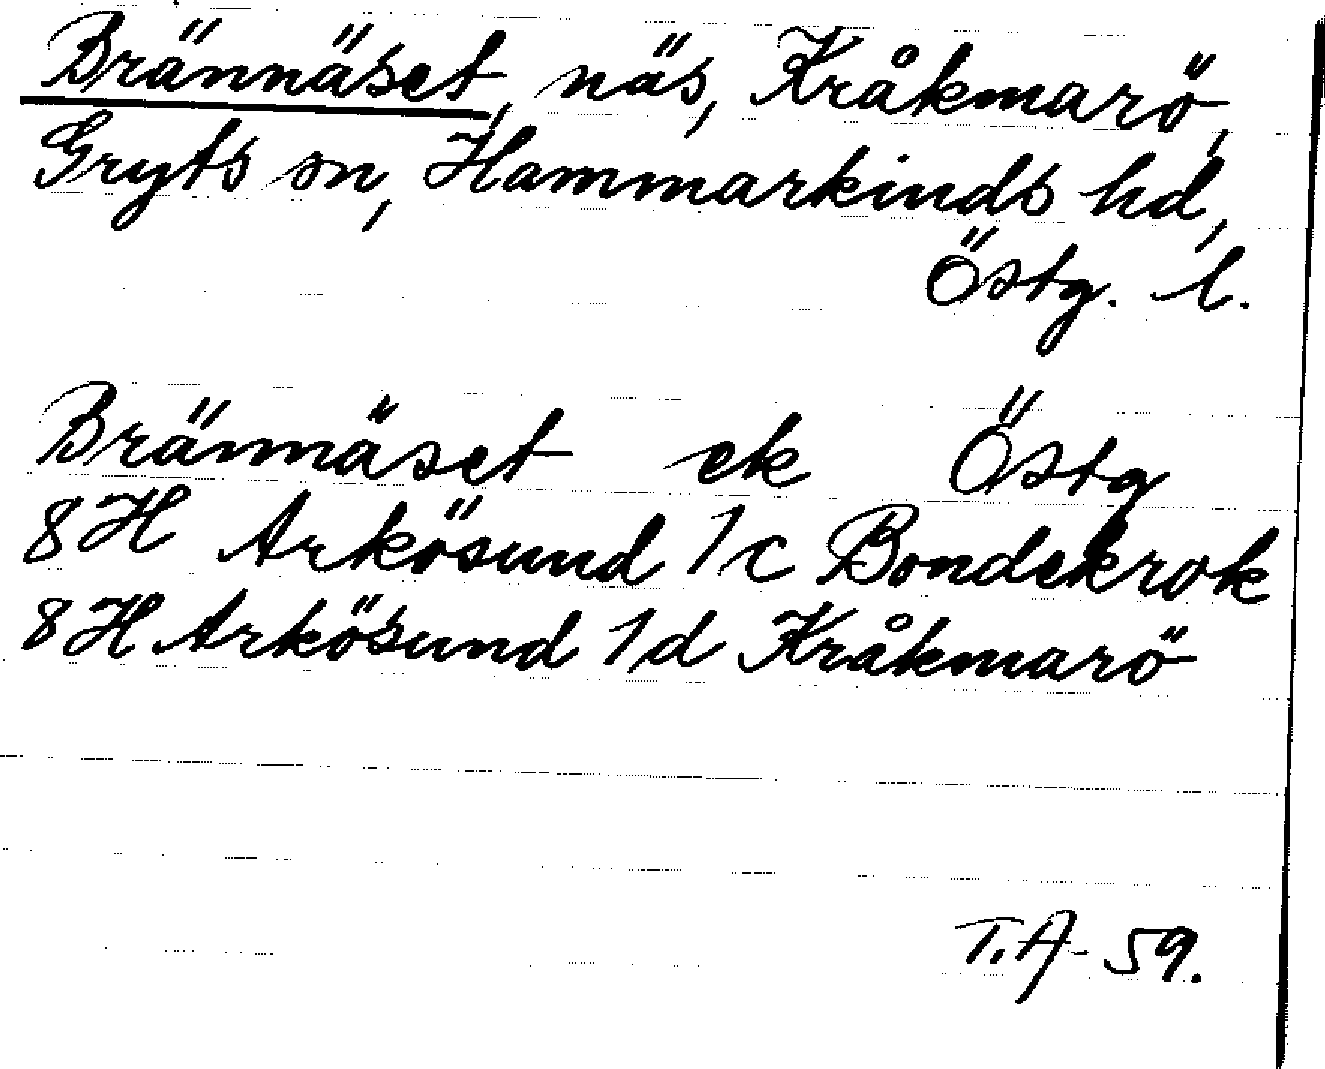 Brännäset, näs, Kråkmarö,
Gryts sn, Hammarkinds hd,
Östg. l.
Brännäset ek Östg
8H Arkösund 1c Bondekrok
8H Arkösund 1d Kråkmarö
T.A-59.